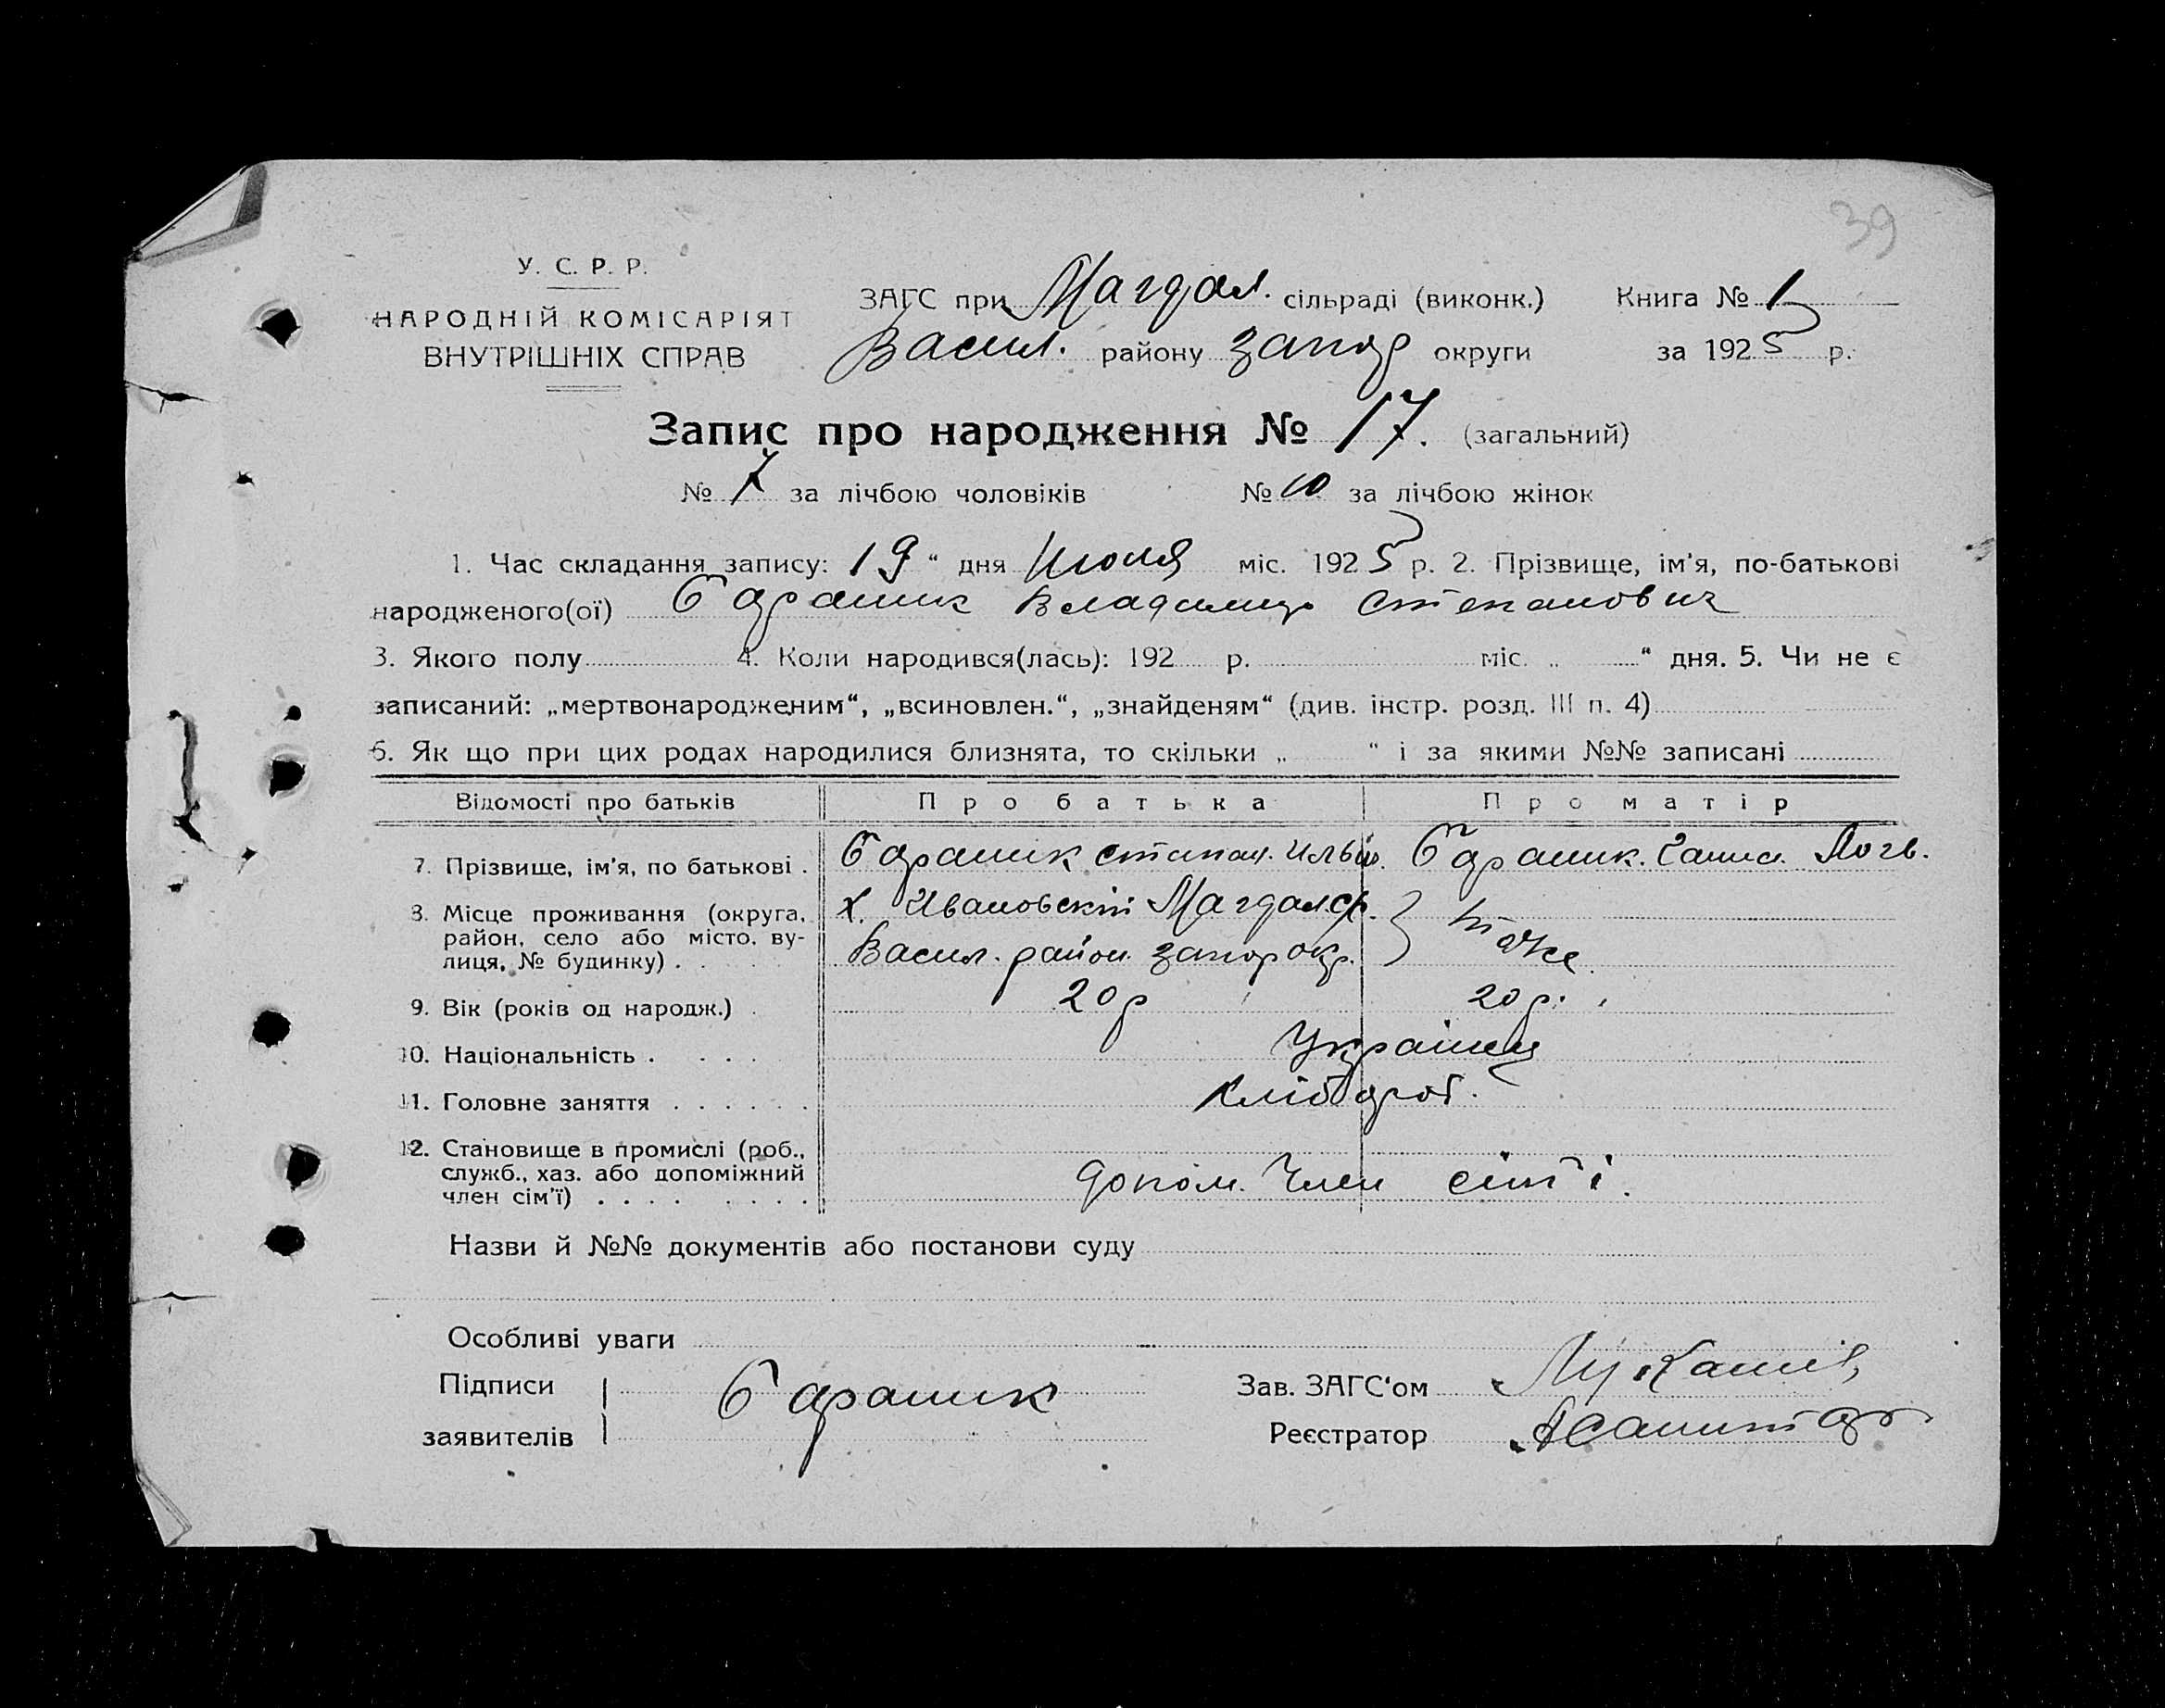 39
У. С. Р. Р.
НАРОДНІЙ КОМІСАРІЯТ
ВНУТРІШНІХ СПРАВ
ЗАГС при Магдал. сільраді (виконк.) Книга № 1
Васил. району Запор округи за 1925 р.
Запис про народження № 17. (загальний)
№ 7 за лічбою чоловіків № 10 за лічбою жінок
1. Час складання запису: 19 “ дня Июля міс. 1925 р. 2. Прізвище, ім’я, по-батькові
народженого(ої) Бараник Владимир Степанович
3. Якого полу 4. Коли народився(лась): 192 р. міс. „ “ дня. 5. Чи не є
записаний: „мертвонародженим“, „всиновлен.“, „знайденям“ (див. інстр. розд. III п. 4)
6. Як що при цих родах народилися близнята, то скільки „ “ і за якими №№ записані
Відомості про батьків Про батька Про матір
7. Прізвище, ім’я, по батькові . Бараник Степан. Ильич. Бараник. Логв.
8. Місце проживання (округа, район, село або місто, вулиця, № будинку) . . х. Ивановскій Магдал.ср.
Васил. район Запор окр. } тоже
9. Вік (років од народж.) . 20 р 20 р.
10. Національність . . . . Українец
11. Головне заняття . . . . . . Хлібороб.
12. Становище в промислі (роб.,
служб., хаз. або допоміжний
член сім’ї) . . . . . . . . допом. член сімї.
Назви й №№ документів або постанови суду
Особливі уваги
Підписи Бараник Зав. ЗАГС‘ом
заявителів Реєстратор